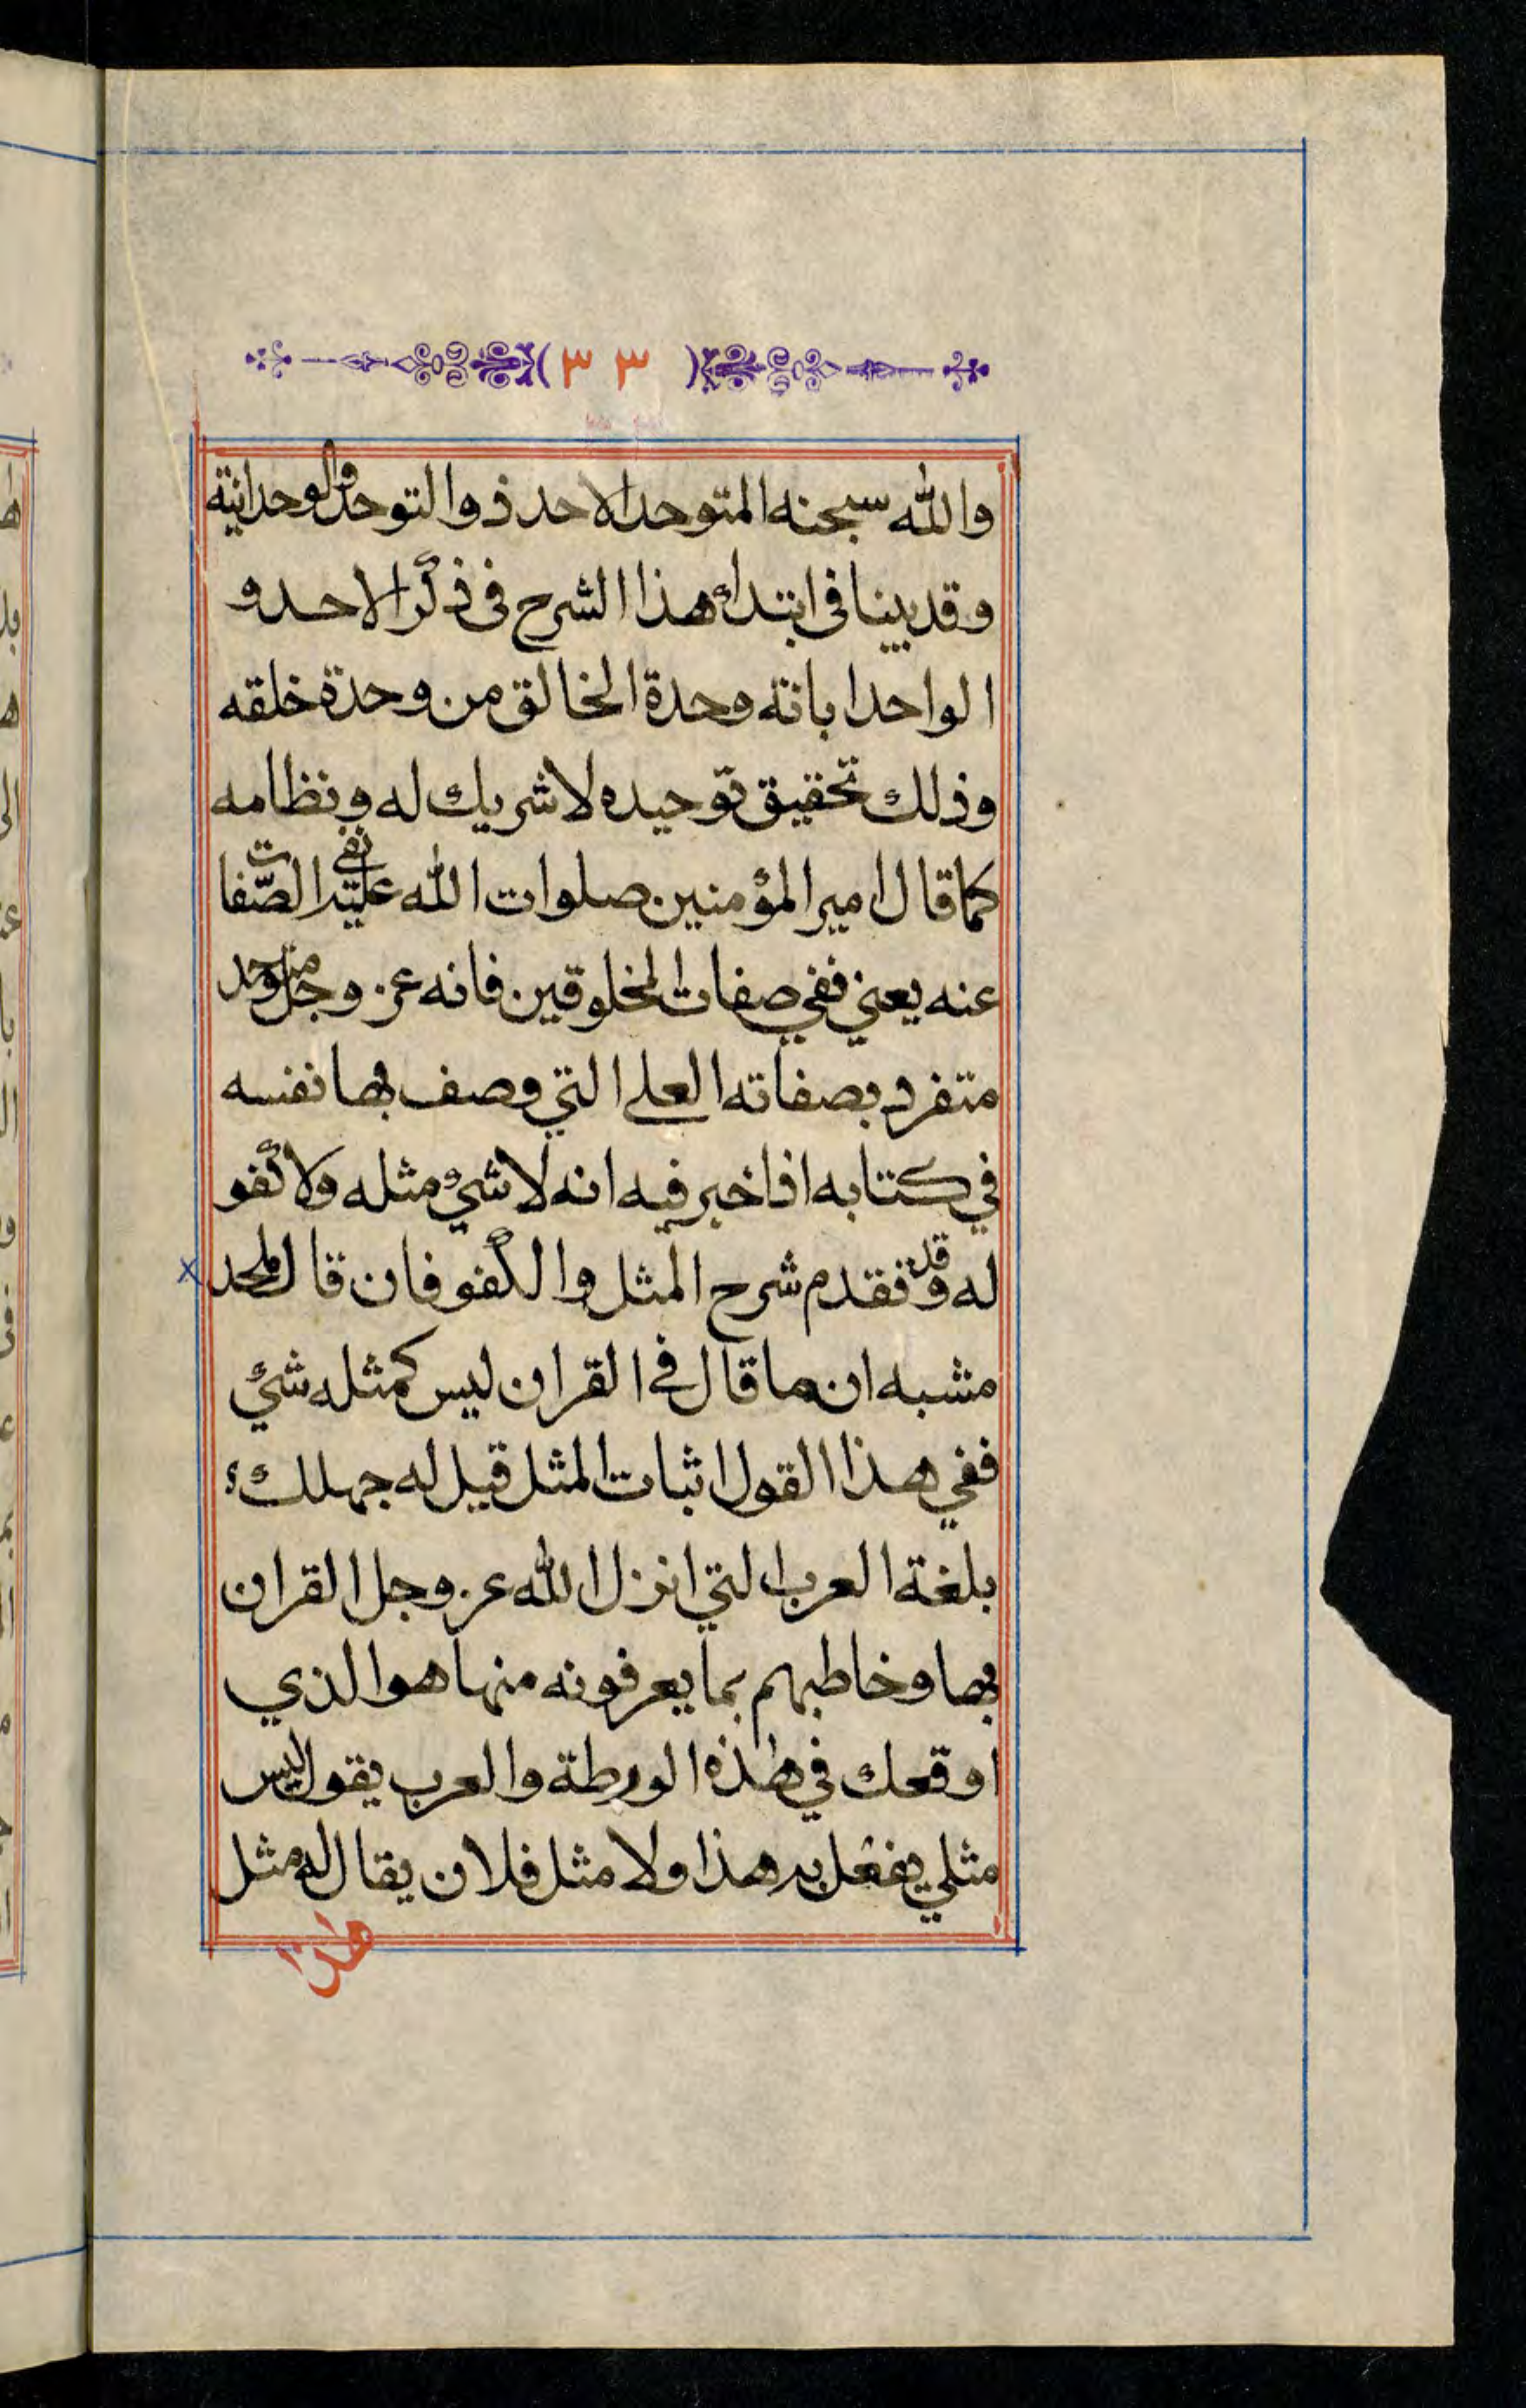 (٣٣)
والله سبحنه المتوحد الاحد ذو التوحد والوحدانية
وقد بينا فى ابتداء هذا الشرح فى ذكر الاحد و
الواحد ابانة وحدة الخالق من وحدة خلقه
وذلك تحقيق توحيده لا شريك له ونظامه
كما قال امير المؤمنين صلوات الله عليه نفى الصّفات
عنه يعني نفي صفات المخلوقين فانه عز وجل متوحد
متفرد بصفاته العلى التي وصف بها نفسه
في كتابه اذ اخبر فيه انه لا شيء مثله ولا كفو
له وقد فقدم شرح المثل والكفو فان قال ملحد
مشبه انما قال في القران ليس كمثله شيء
ففي هذا القول اثبات المثل قيل له جهلك
بلغة العرب التي انزل الله عز وجل القران
بها وخاطبهم بما يعرفونه منها هو الذي
اوقعك في هذه الورطة والعرب يقول ليس
مثلي يفعل به هذا ولا مثل فلان يقال له مثل
هذا